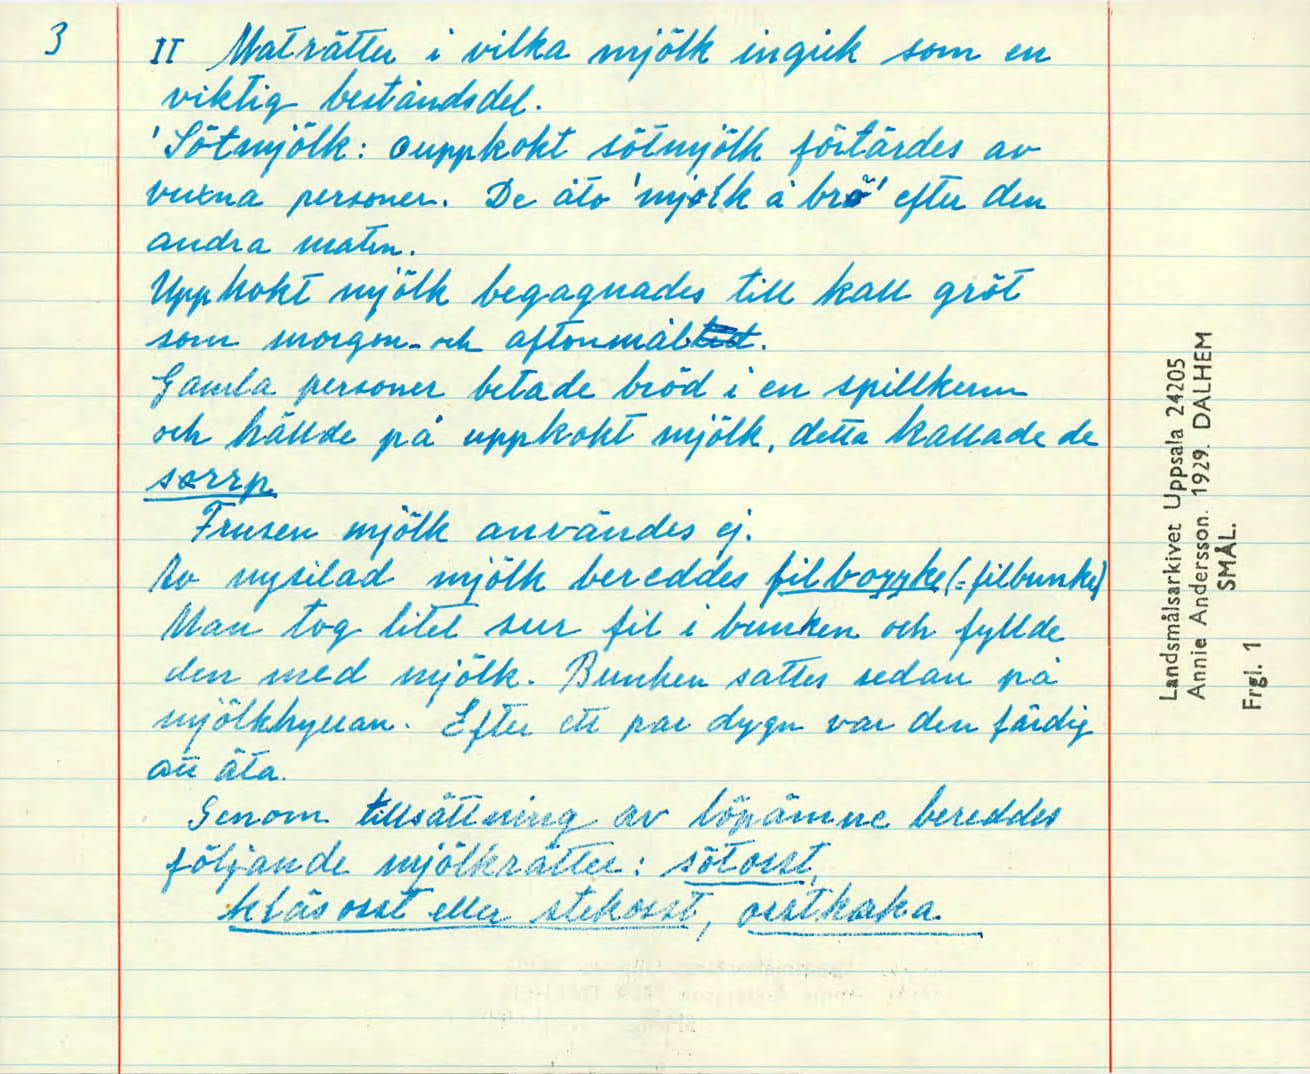 3
II Maträtter i vilka mjölk ingick som en
viktig beståndsdel.
'Sötmjölk: ouppkokt sötmjölk förtärdes av
vuxna personer. De åto 'mjölk å brö' efter den
andra maten.
Uppkokt mjölk begagnades till kall gröt
som morgon- och aftonmål.
Gamla personer betade bröd i en spillkum
och hällde på uppkokt mjölk, detta kallade de
sorrp
Frusen mjölk användes ej.
Av nysilad mjölk bereddes (=filbunke)
Man tog litet sur fil i bunken och fyllde
den med mjölk. Bunken sattes sedan på
mjölkhyllan. Efter ett par dygn var den färdig
att äta.
Genom tillsättning av löpämne bereddes
följande mjölkrätter: sötosst,
eller stekosst, osstkaka
Landsmålsarkivet Uppsala 24205
Annie Andersson. 1929. DALHEM
SMÅL.
Frgl. 1